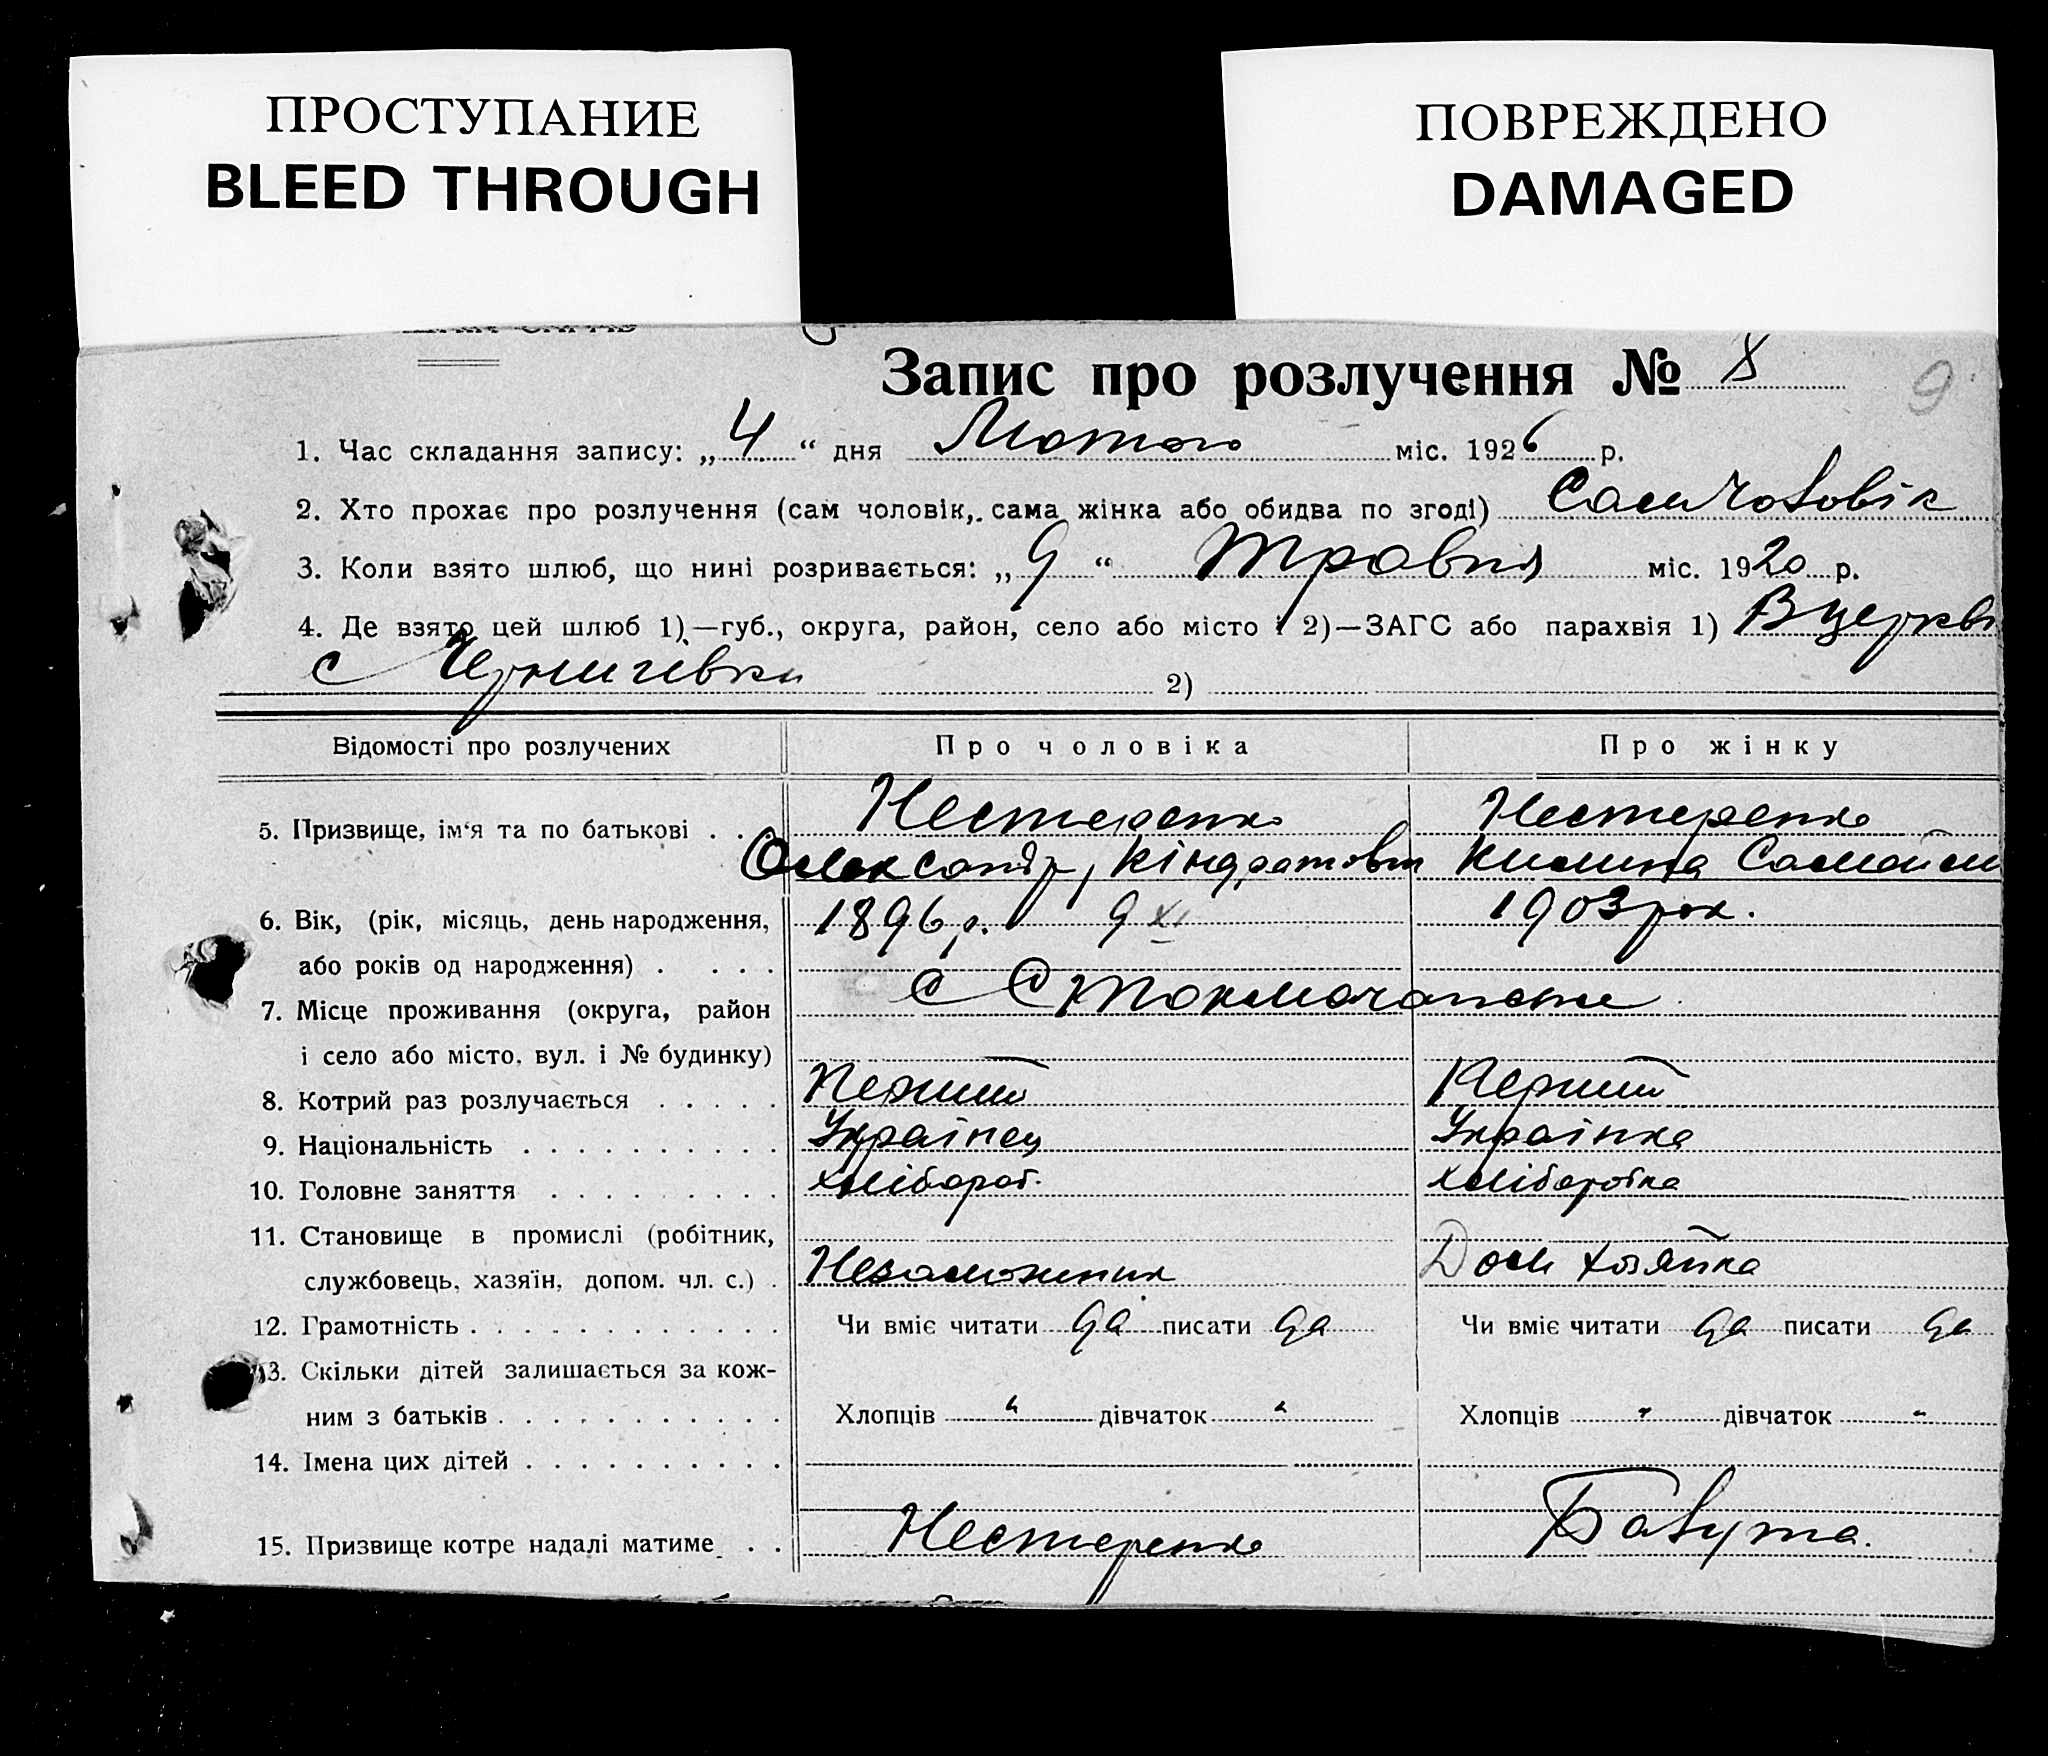 ПРОСТУПАНИЕ
BLEED THROUGH
ПОВРЕЖДЕНО
DAMAGED
Запис про розлучення № 8
9
1. Час складання запису: „4“ дня Лютого міс. 1926 р.
2. Хто прохає про розлучення (сам чоловік, сама жінка або обидва по згоді) Сам Чоловік
3. Коли взято шлюб, що нині розривається: „9“ травня міс. 1920 р.
4. Де взято цей шлюб 1)—губ., округа, район, село або місто і 2)—ЗАГС або парахвія 1) В церкві
с Чернигівки 2)
Відомості про розлучених Про чоловіка Про жінку
5. Призвище, ім'я та по батькові . . Нестеренко Нестеренко
Олександр, Кіндратович Килина Самойл
6. Вік, (рік, місяць, день народження, 1896 р. 9 XI 1903 рок.
або років од народження) . . . .
7. Місце проживання (округа, район с
і село або місто, вул. і № будинку)
8. Котрий раз розлучається . . . . . Перший Перший
9. Національність . . . . . . . . . . Українец Українка
10. Головне заняття . . . . . . . . . хлібороб. хліборобка
11. Становище в промислі (робітник,
службовець, хазяїн, допом. чл. с.) . Незаможник Дом хозяйка
12. Грамотність . . . . . . . . . . . . Чи вміє читати да писати да Чи вміє читати да писати да
13. Скільки дітей залишається за кож-
ним з батьків . . . . . . . . . . . Хлопців " дівчаток " Хлопців " дівчаток "
14. Імена цих дітей . . . . . . . . . .
15. Призвище котре надалі матиме . . Нестеренко Бабута.